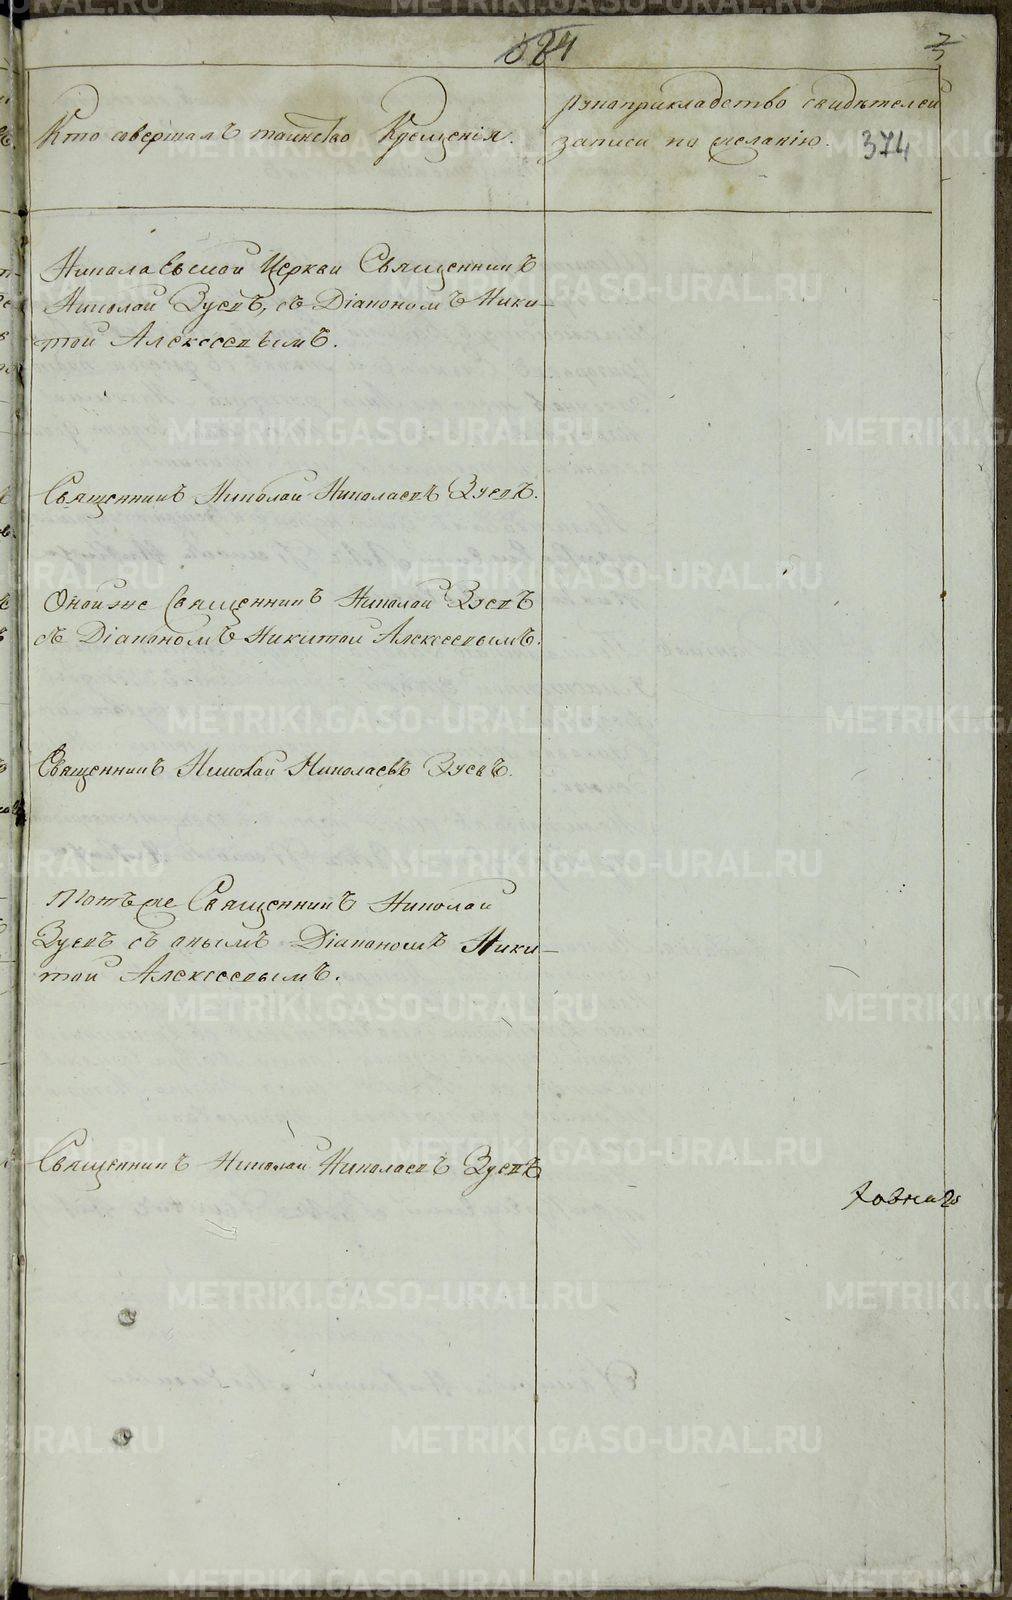 374
Кто совершалъ таинство Крещенія.
рукоприкладство свидѣтелей
записи по желанію.
Николаевской Церкви Священникъ
Николай Зуевъ, съ Діакономъ Ники-
той Алексеевымъ.
Священникъ Николай Николаевъ Зуевъ.
Оной же Священникъ Николай Зуевъ
съ Діакономъ Никитой Алексеевымъ.
Священникъ Николай Николаевъ Зуевъ.
Тотъ же Священникъ Николай
Зуевъ съ онымъ Діакономъ Ники-
той Алексеевымъ.
Священникъ Николай Николаевъ Зуевъ
METRIKI.GASO-URAL.RU